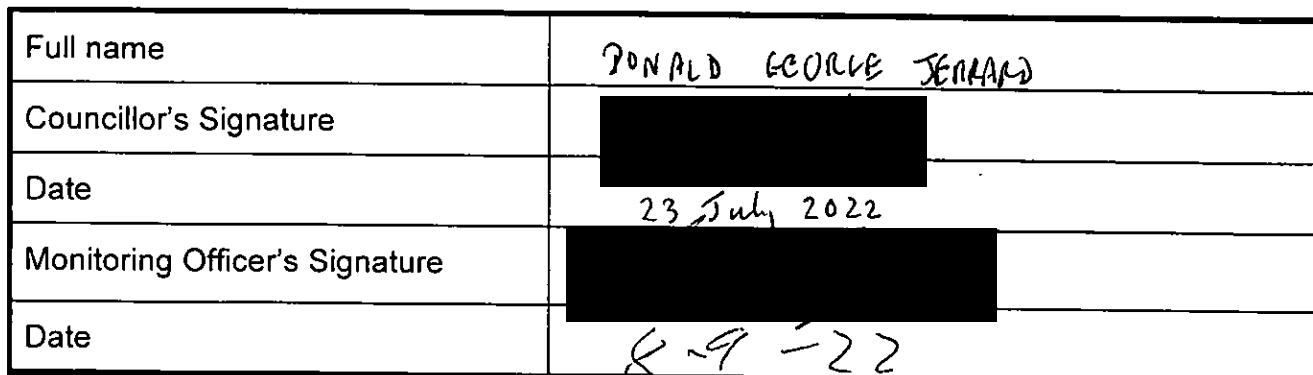 Full name DONALD GEORGE JERRARD
Councillor's Signature
Date 23 July 2022
Monitoring Officer's Signature
Date 8-9-22